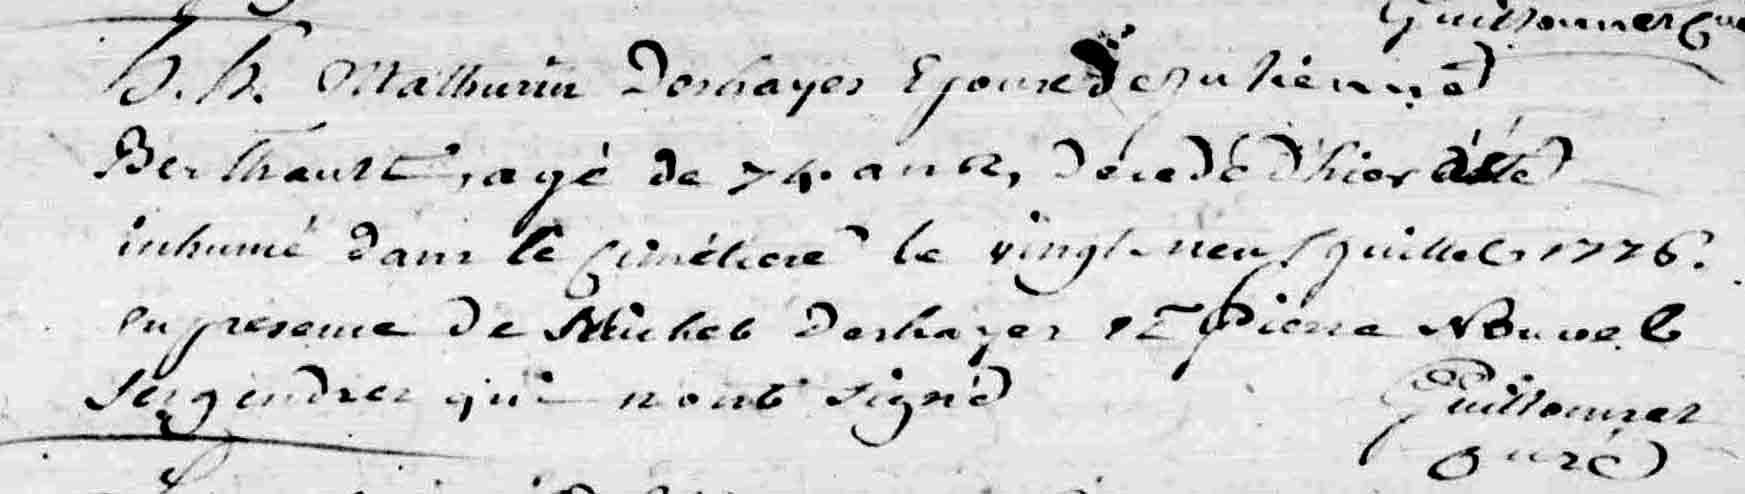 Guillonner Cure
h.h. Mathurin Deshayes Epoux de Julienne
Berthault, agé de 74 ans, decedé d'hier a été
inhumé dans le Cimétiere le vingt neuf juillet 1776.
en presence de Michel Deshayes et Pierre Nouvel
ses gendres qui n'ont signé
Guillonner
curé